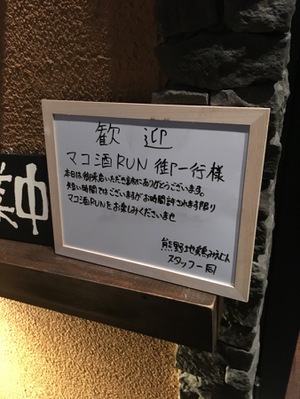 歓迎
マコ酒RUN 御一行様
本日は御来店いただき誠にありがとうございます。
短い時間ではございますがお時間許されます限り
マコ酒RUNをお楽しみくださいませ
熊野地鶏みえじん
スタッフ一同
業中